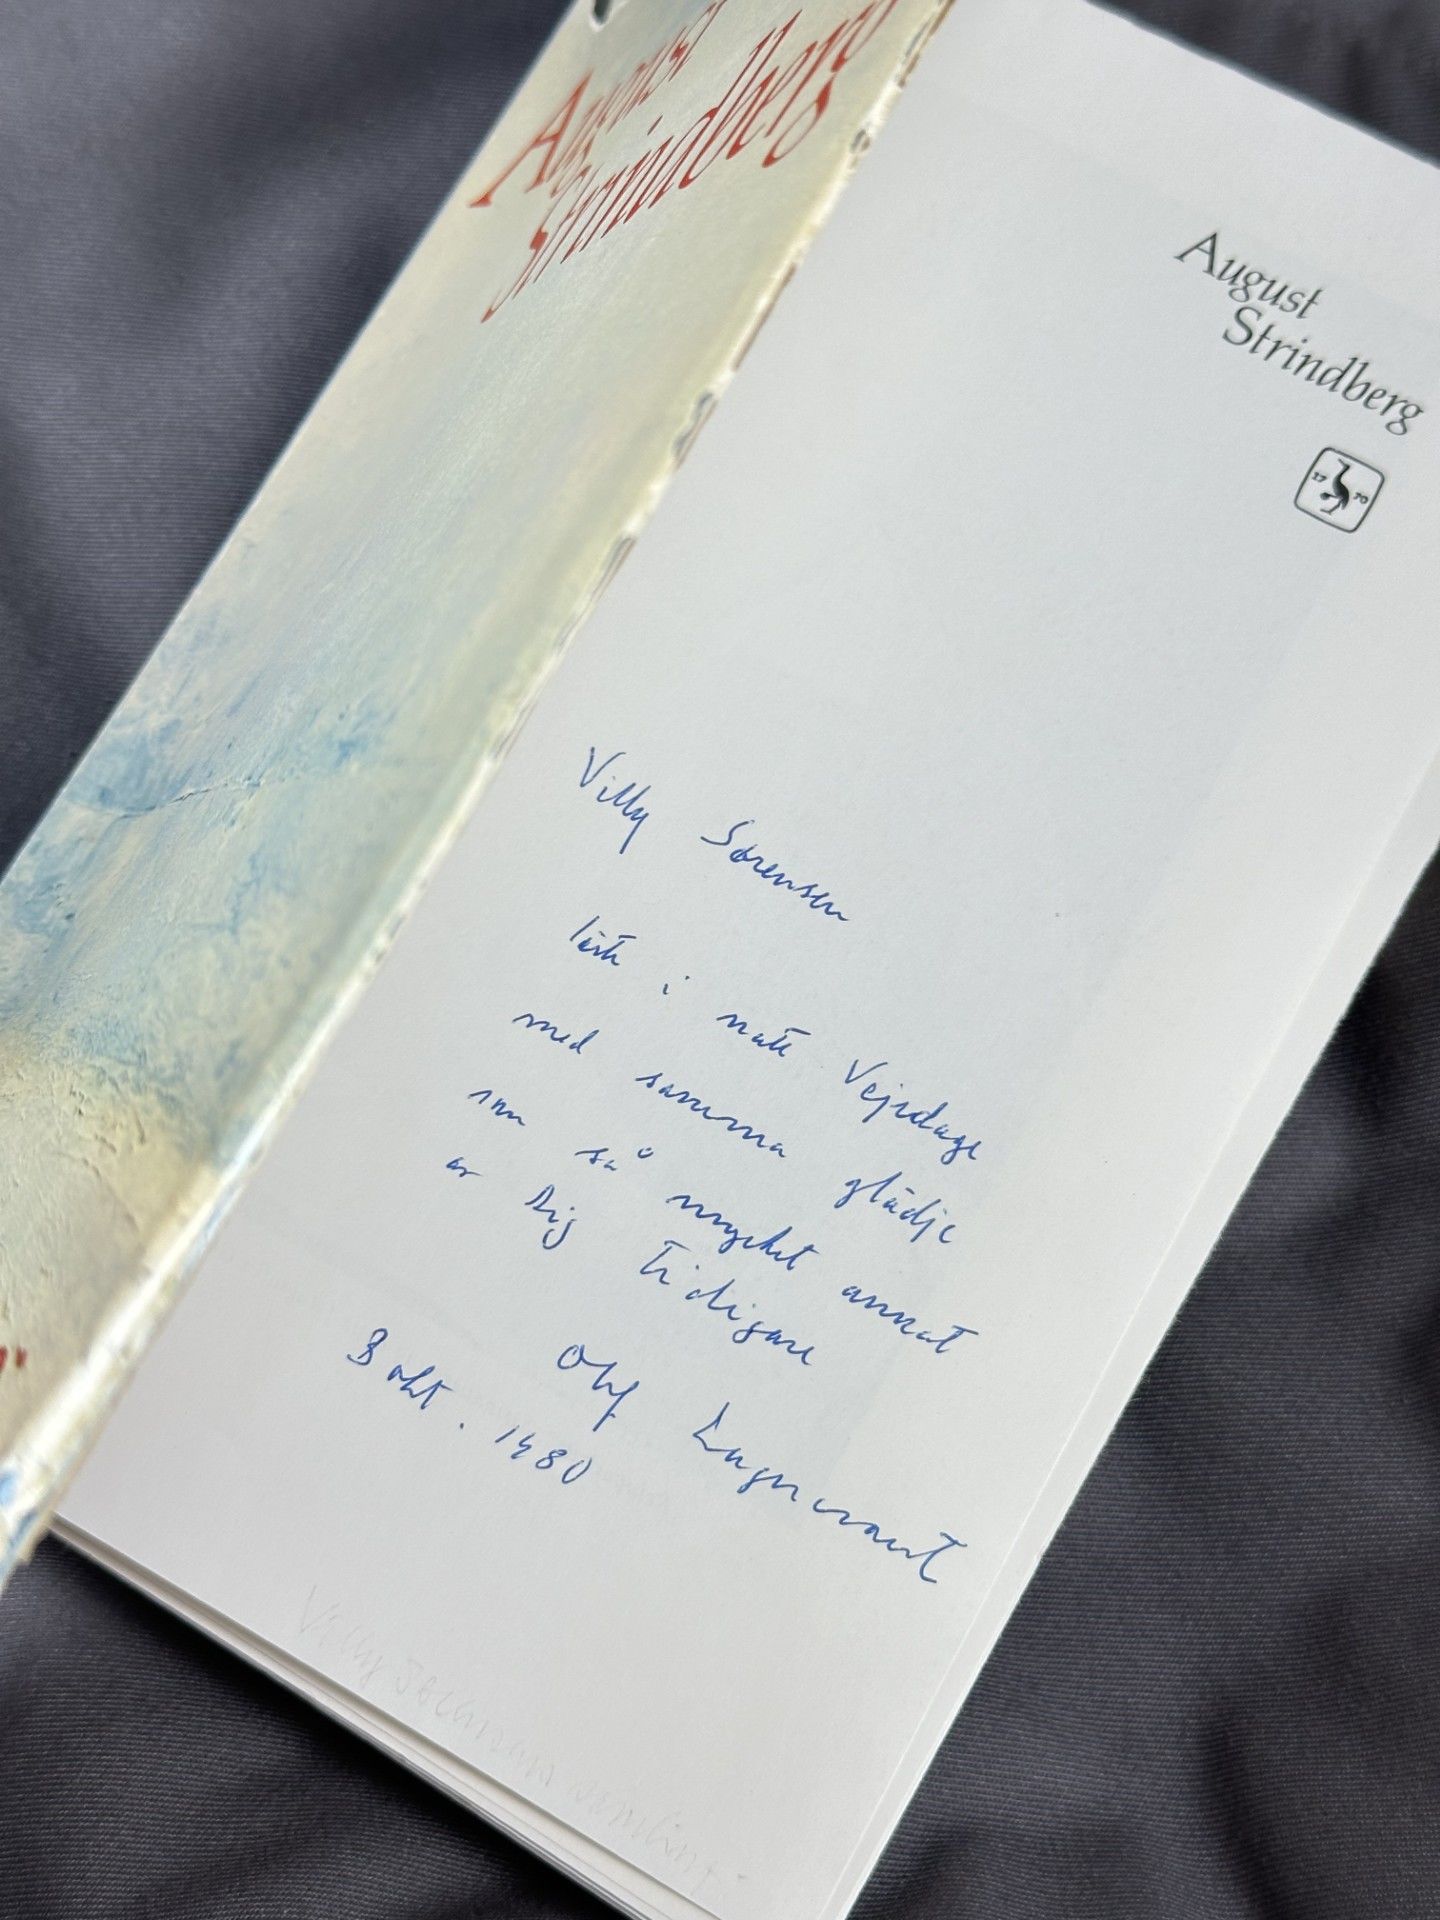 August
Strindberg
August
Strindberg
17 70
Villy Sørensen
läste i natt Vejrdage
med samma glädje
som så mycket annat
av Dig tidigare
Olof Lagercrantz
3 okt. 1980
Villy Sørensens